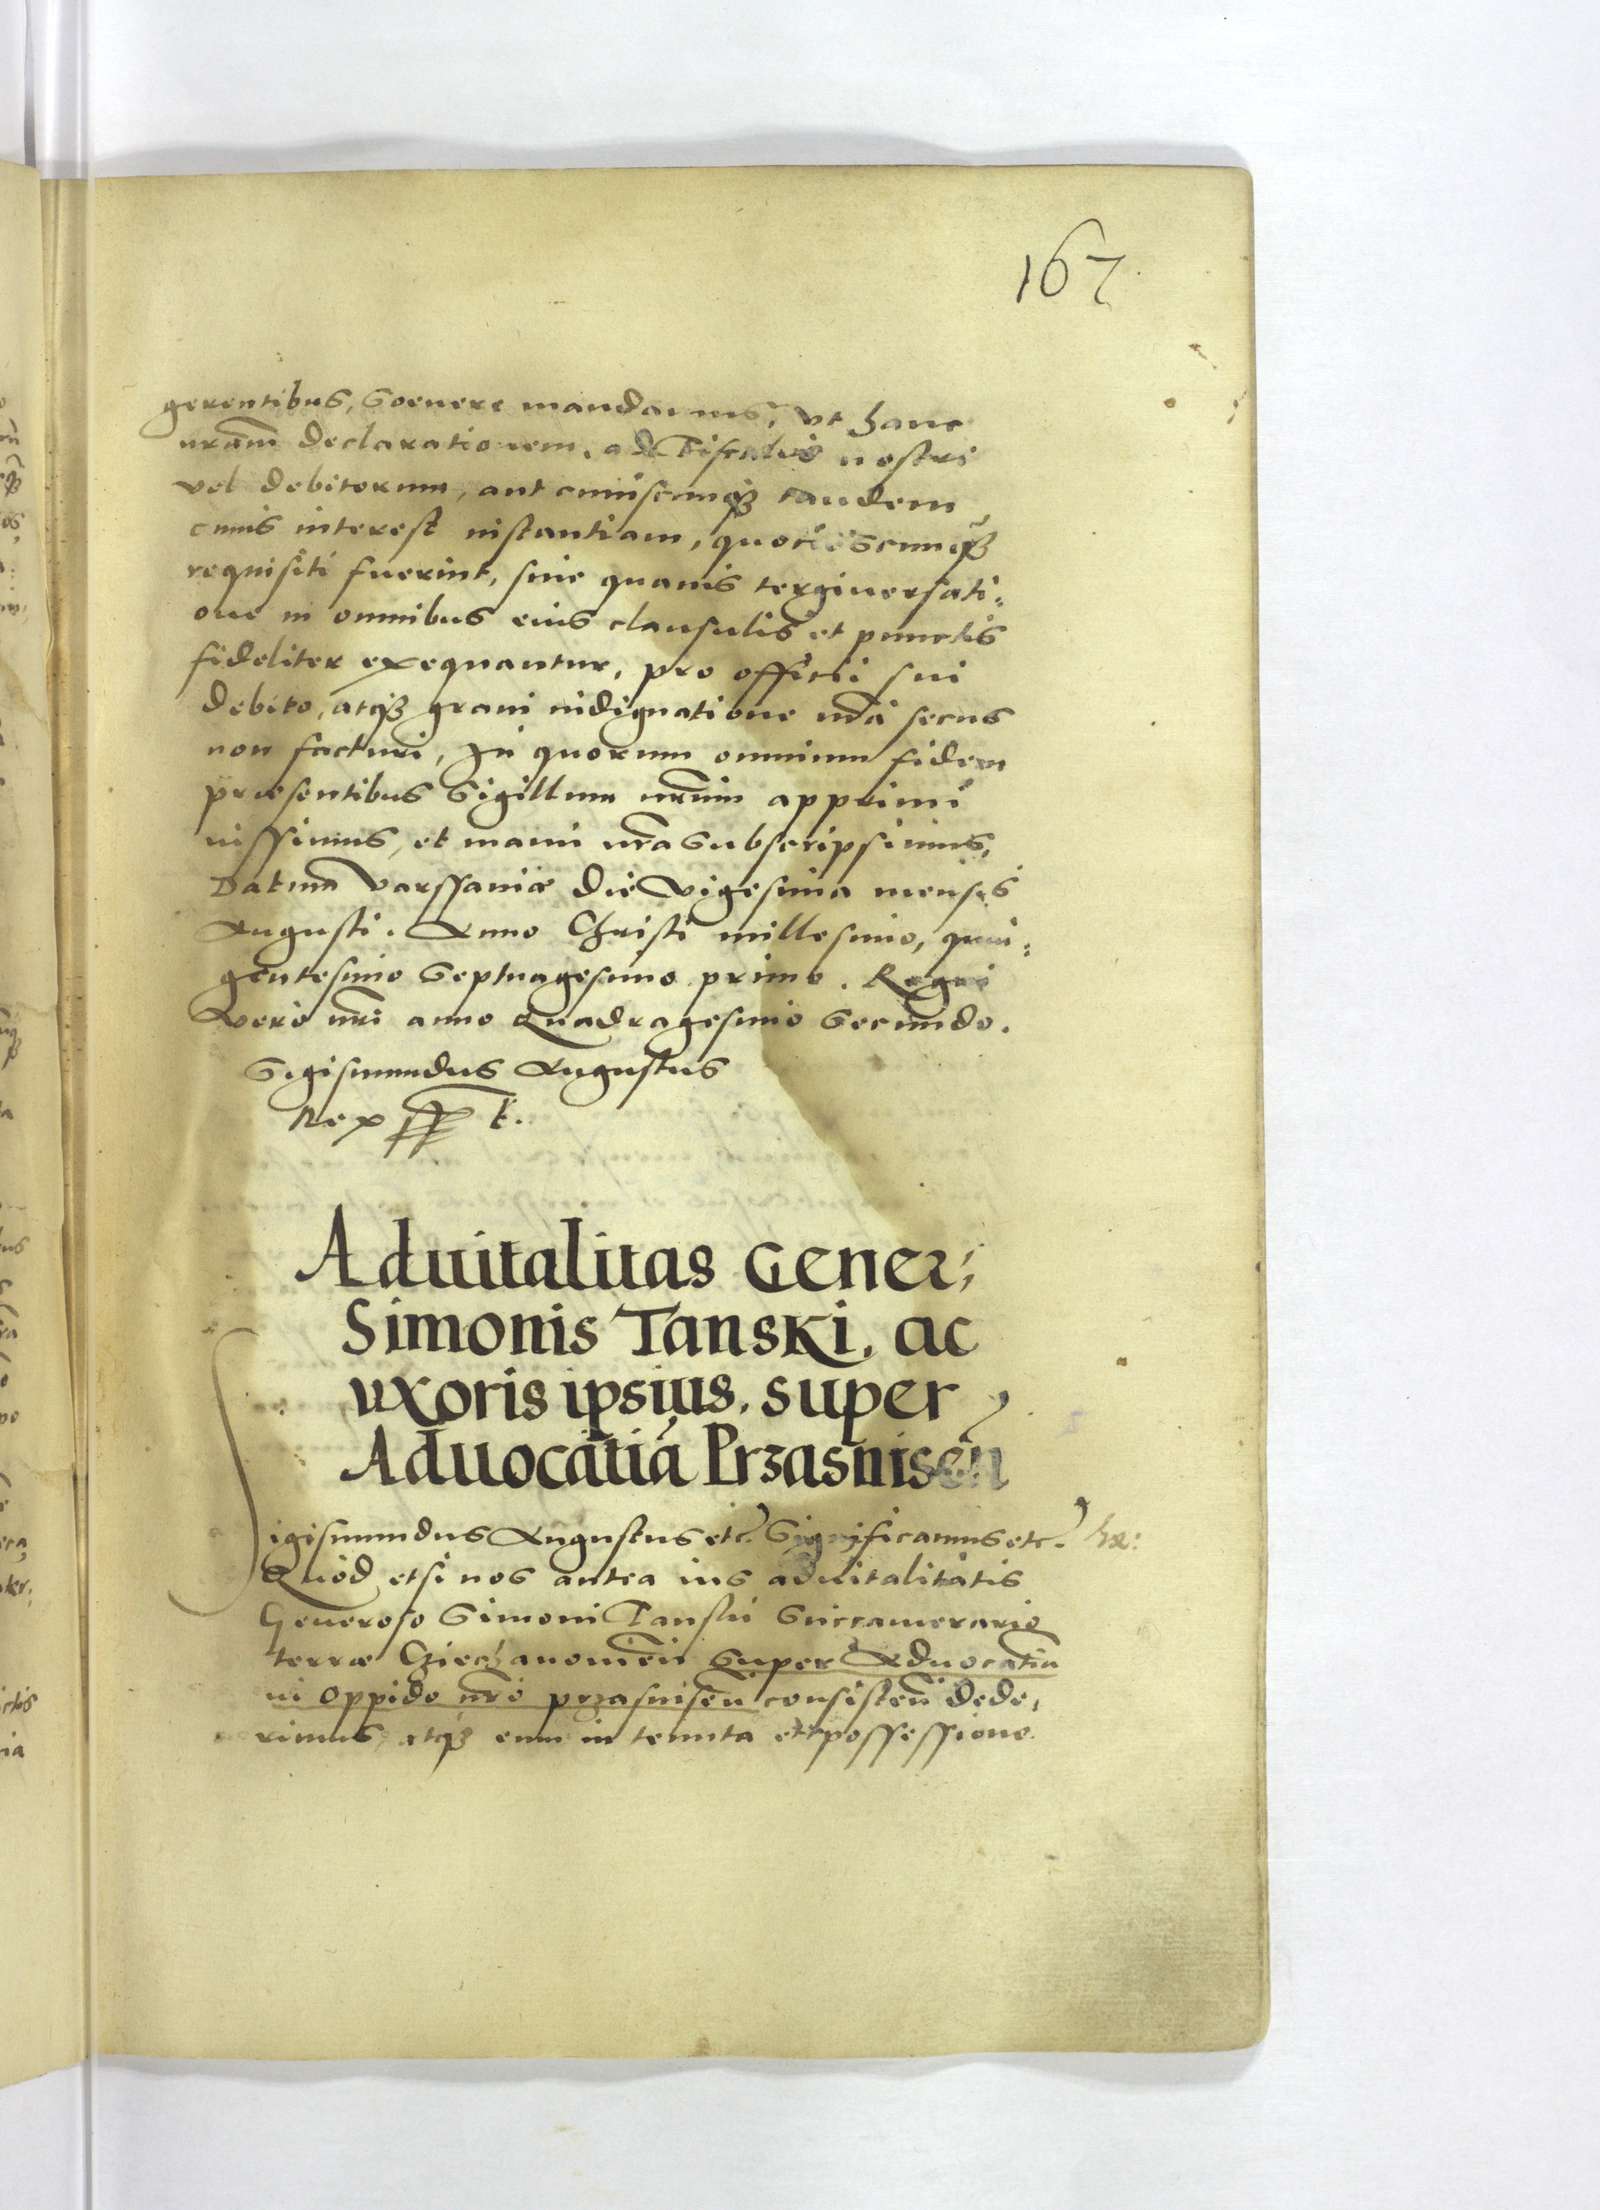 167
gerentibus, Soevere mandamus, vt hanc
nram declarationem, ad Fiscalis nostri
vel debitorum, aut cuiuscunqꝫ tandem
cuius interest instantiam, quotiescunqꝫ
requisiti fuerint, sine quauis tergiuersati:
one in omnibus eius clausulis et punctis
fideliter exequantur, pro officii sui
debito, atqꝫ graui indignatione nra secus
non facturi, In quorum omnium fidem
præsentibus Sigillum nrum apprimi
iussimus, et manu nra Subscripsimus,
Datum Varssaniæ die Vigesima mensis
Augusti. Anno Christi millesimo, quin:
gentesimo Septuagesimo primo. Regni
Vero nri anno Quadragesimo Secundo.
Sigismundus Augustus
Rex
Aduitalitas Gener,
Simonis Tanski, ac
vxoris ipsius, super
Aduocatiã Przasnisen
Sigismundus Augustus etc. Significamus etc.
Quod etsi nos antea ius aduitalitatis
Generoso Simoni Tanski Succamerario
terræ Cziechanouien Super Aduocatia
in Oppido nro przasnisen consisten dede,
rimus, atqꝫ eum in tenuta et possessione